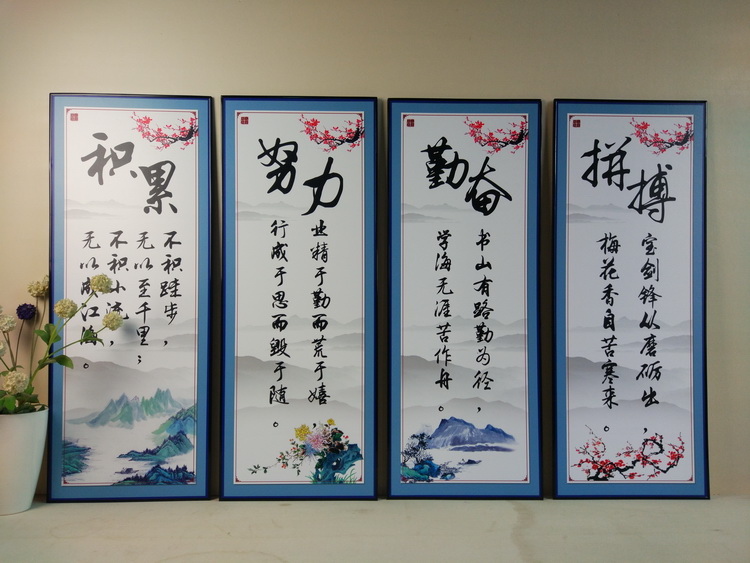 积累
不积跬步，
无以至千里；
不积小流，
无以成江海。
努力
业精于勤而荒于嬉，
行成于思而毁于随。
勤奋
书山有路勤为径，
学海无涯苦作舟。
拼搏
宝剑锋从磨砺出，
梅花香自苦寒来。